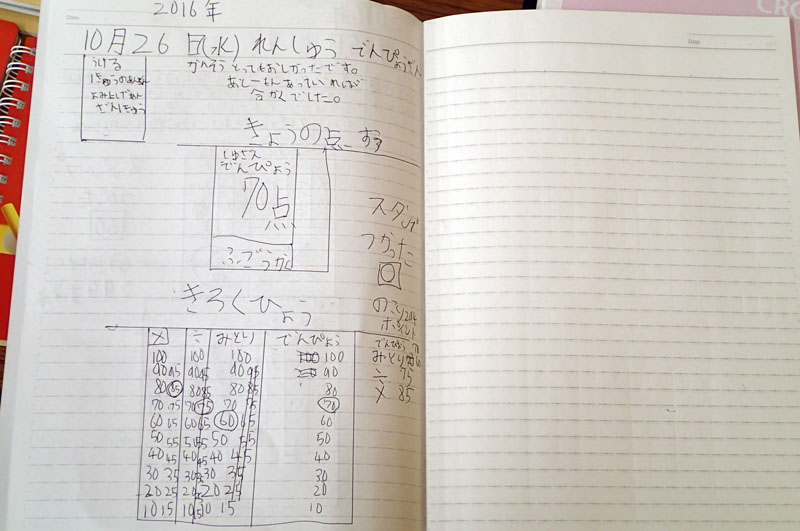 2016年
10月26日(水)れんしゅう でんぴょうざん
うける
かんそう とってもおしかったです。
あと一もんあっていれば
合かくでした。
きょうの点-すう
しゅざん
でんぴょう
70点
ふごうかく
スタンプ
つかった
のこり
ポイント
きろくひょう
× ÷ みとり でんぴょう
100 100 100 100
90 95 90 95 90 95 90
80 85 80 85 80 85 80
70 75 70 75 70 75 70
60 65 60 65 60 65 60
50 55 50 55 50 55 50
40 45 40 45 40 45 40
30 35 30 35 30 35 30
20 25 20 25 20 25 20
10 15 10 15 10 15 10
でんぴょう 70
みとり
÷ 75
× 85
Date
CRO